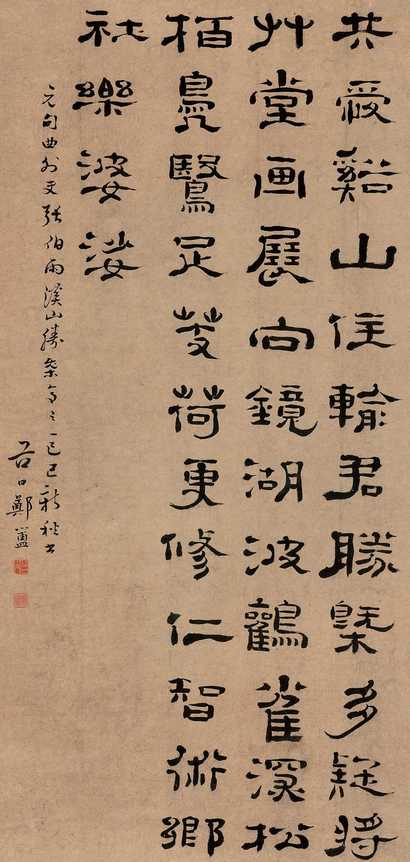 共愛谿山住輸君勝槩多疑將
艸堂画展向鏡湖波鸛雀深松
栢鳧鷖足芰荷更修仁智術鄉
社樂婆娑
元句曲外史張伯雨溪山勝槩之一己巳新秋書
谷口鄭簠